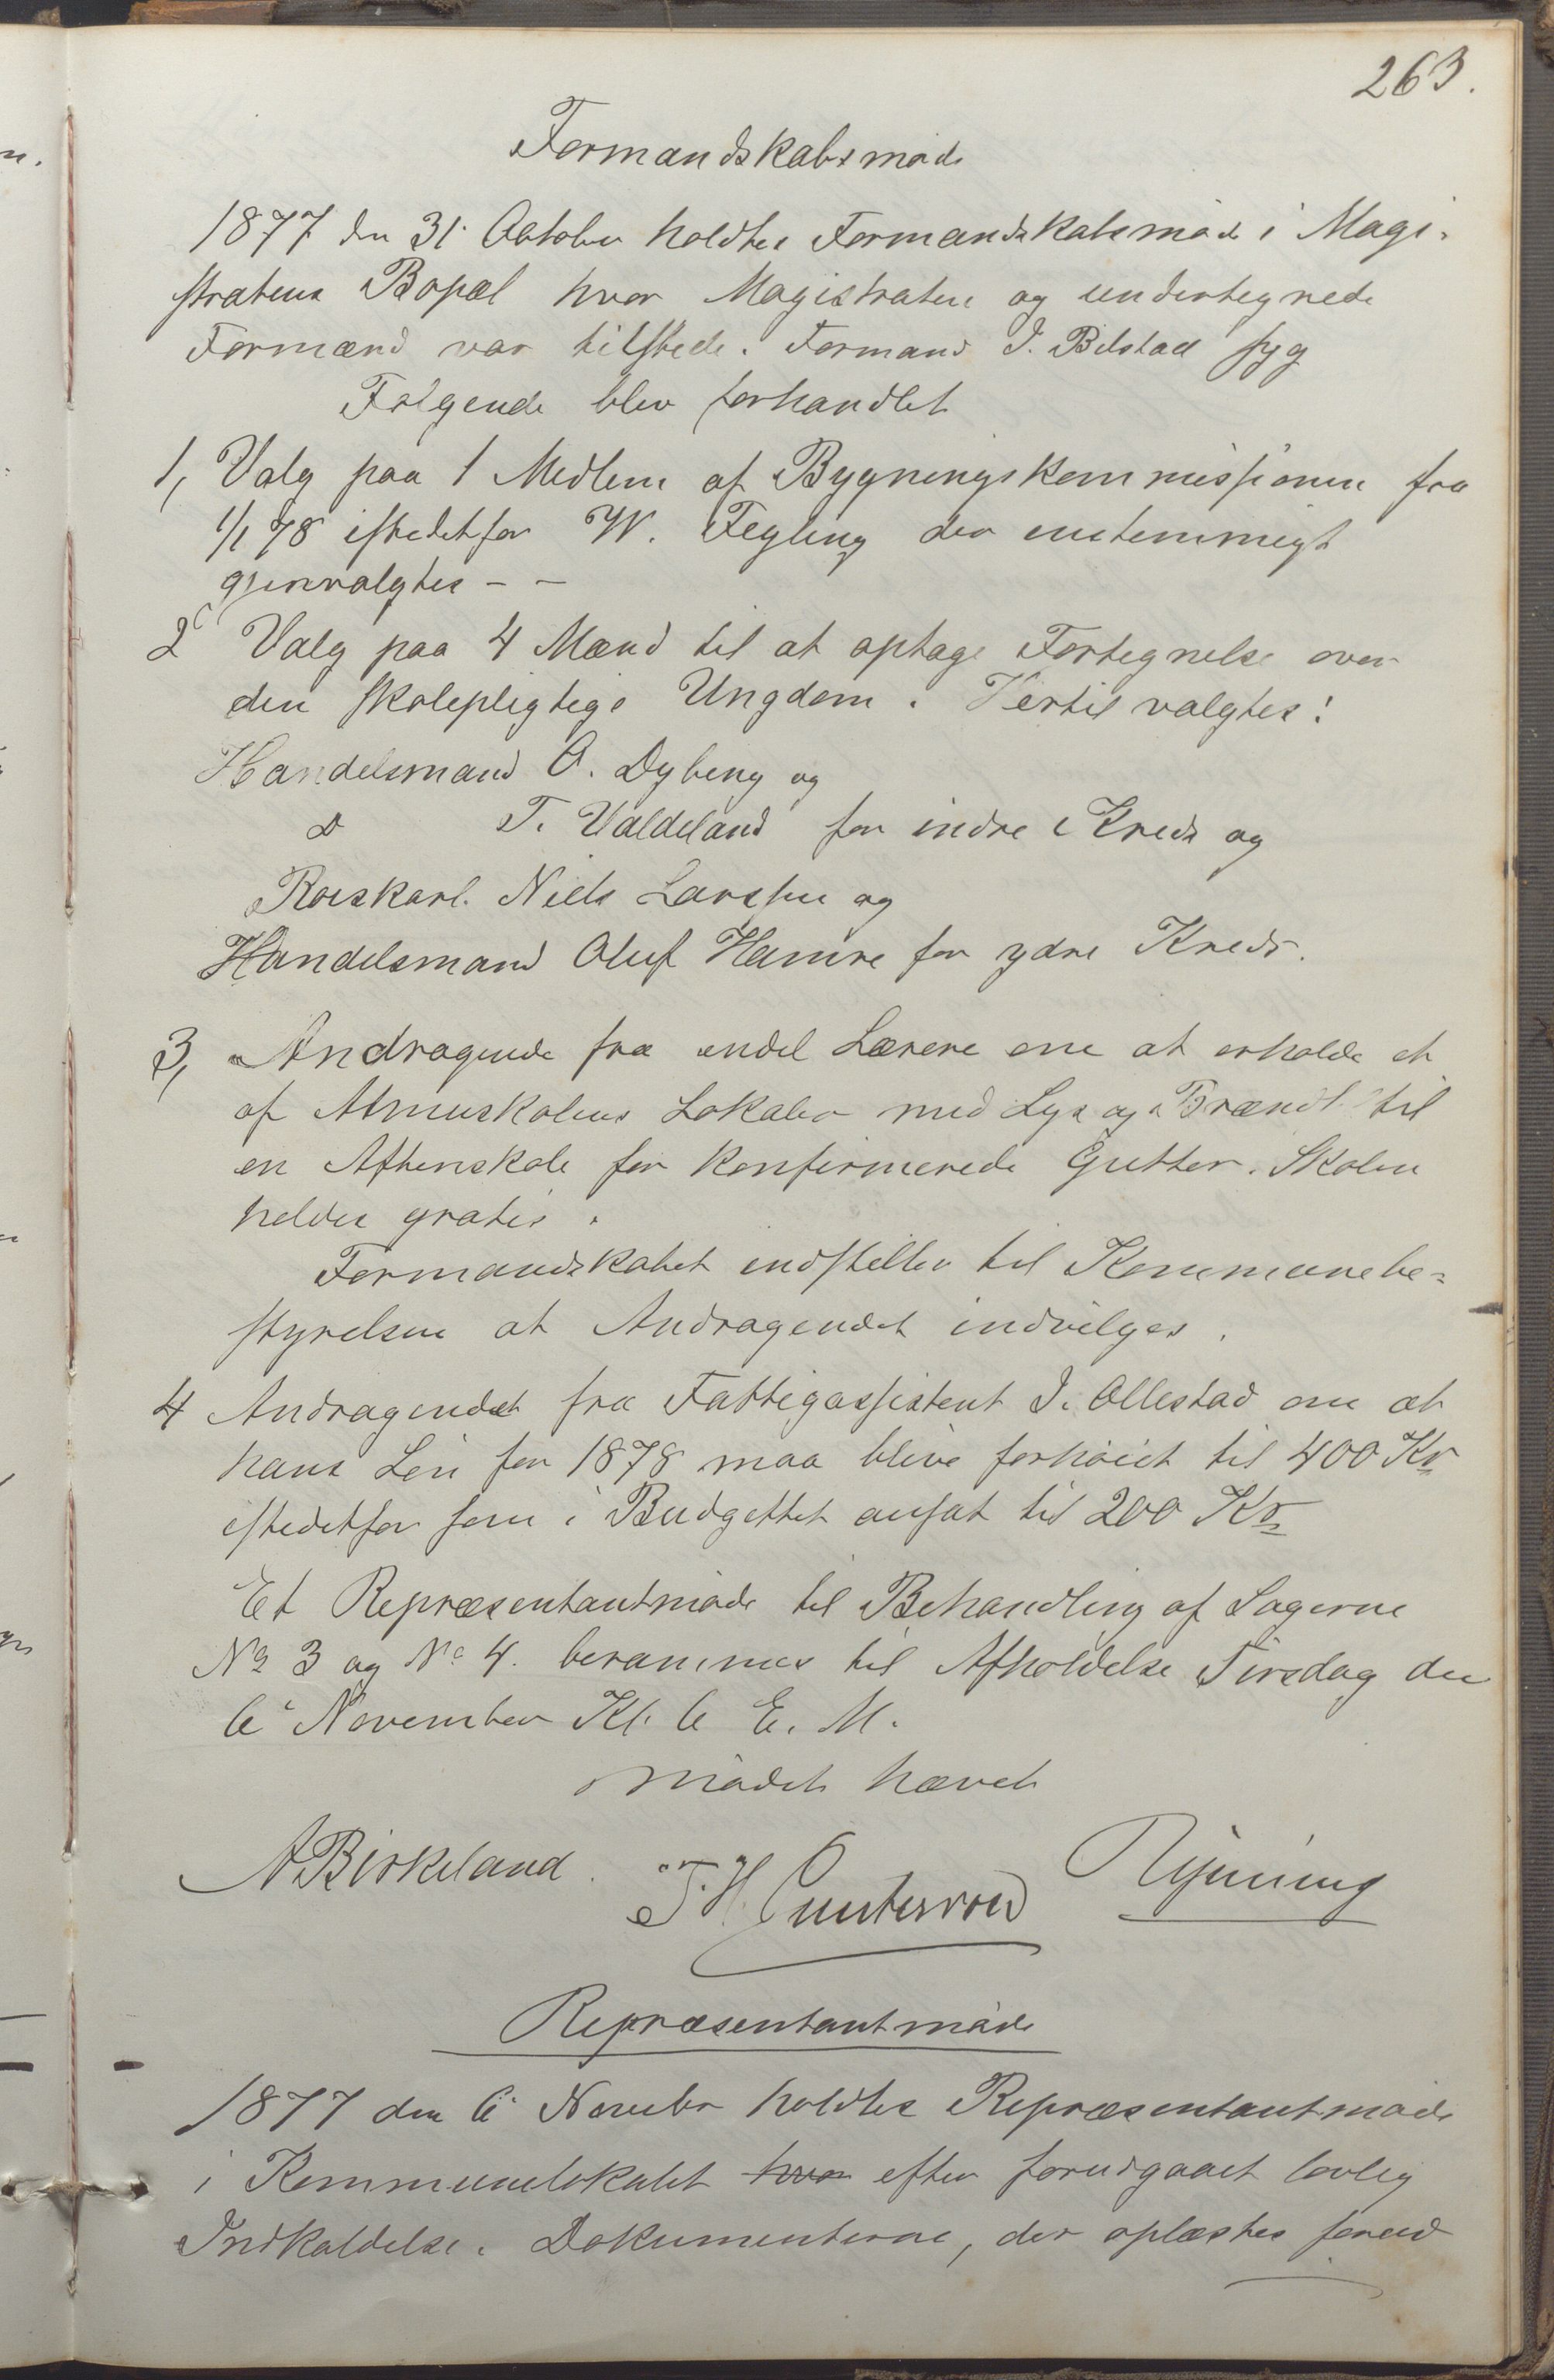 263.
Formandskabsmøde
1877 den 31' October holdtes Formandskabsmøde i Magi-
stratens Bopæl hvor Magistraten og undertegnede
Formænd var tilstede. Formand J. Bilstad syg
Følgende blev forhandlet
1, Valg paa 1 Medlem af Bygningskommissionen fra
1/1 78 istedetfor W. Tegling der enstemmigt
gjenvalgtes - -
2 Valg paa 4 Mænd til at optage Fortegnelse over
den skolepligtige Ungdom. Hertil valgtes:
Handelsmand O. Dybeng og
Do T. Valdeland for indre Kreds og
Roerskarl. Niels Larssen og
Handelsmand Oluf Hamre for ydre Kreds.
3, Andragende fra endel Lærere om at erholde et
af Almuskolens Lokaler med Lys og Brændt til
en Aftenskole for konfirmerede Gutter. Skolen
holdes gratis.
Formandskabet indstiller til Kommunebe-
styrelsen at Andragendet indvilges.
4 Andragendet fra Fattigassistent J. Ollestad om at
hans Løn for 1878 maa blive forhøiet til 400 Kr
istedetfor som i Budgettet ansat til 200 Kr
Et Repræsentantmøde til Behandling af Sagerne
No 3 og No 4. berammes til Afholdelse Tirsdag den
6' November Kl. 6 E. M.
Mødet hævet
A Birkeland. T. H. Gunterrød
Repræsentantmøde
1877 den 6' Novebr holdtes Repræsentantmøde
i Kommunelokalet hvor efter forudgaaet lovlig
Indkaldelse. Dokumenterne, der oplæstes forud